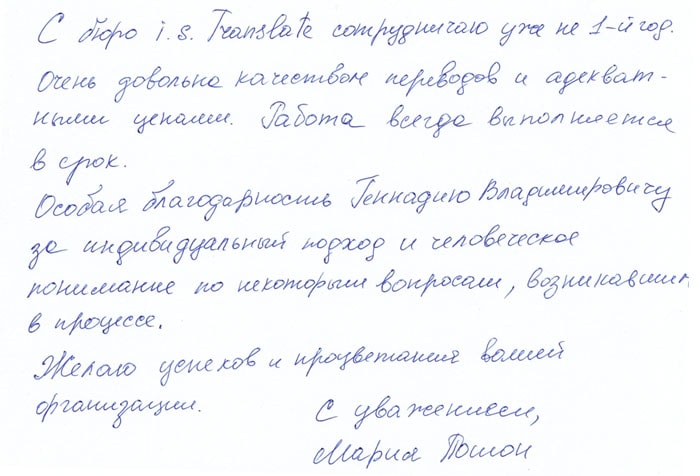 С бюро i.s. Translate сотрудничаю уже не 1-й год.
Очень довольна качеством переводов и адекват-
ными ценами. Работа всегда выполняется
в срок.
Особая благодарность Геннадию Владимировичу
за индивидуальный подход и человеческое
понимание по некоторым вопросам, возникавшим
в процессе.
Желаю успехов и процветания вашей
организации.
С уважением,
Мария